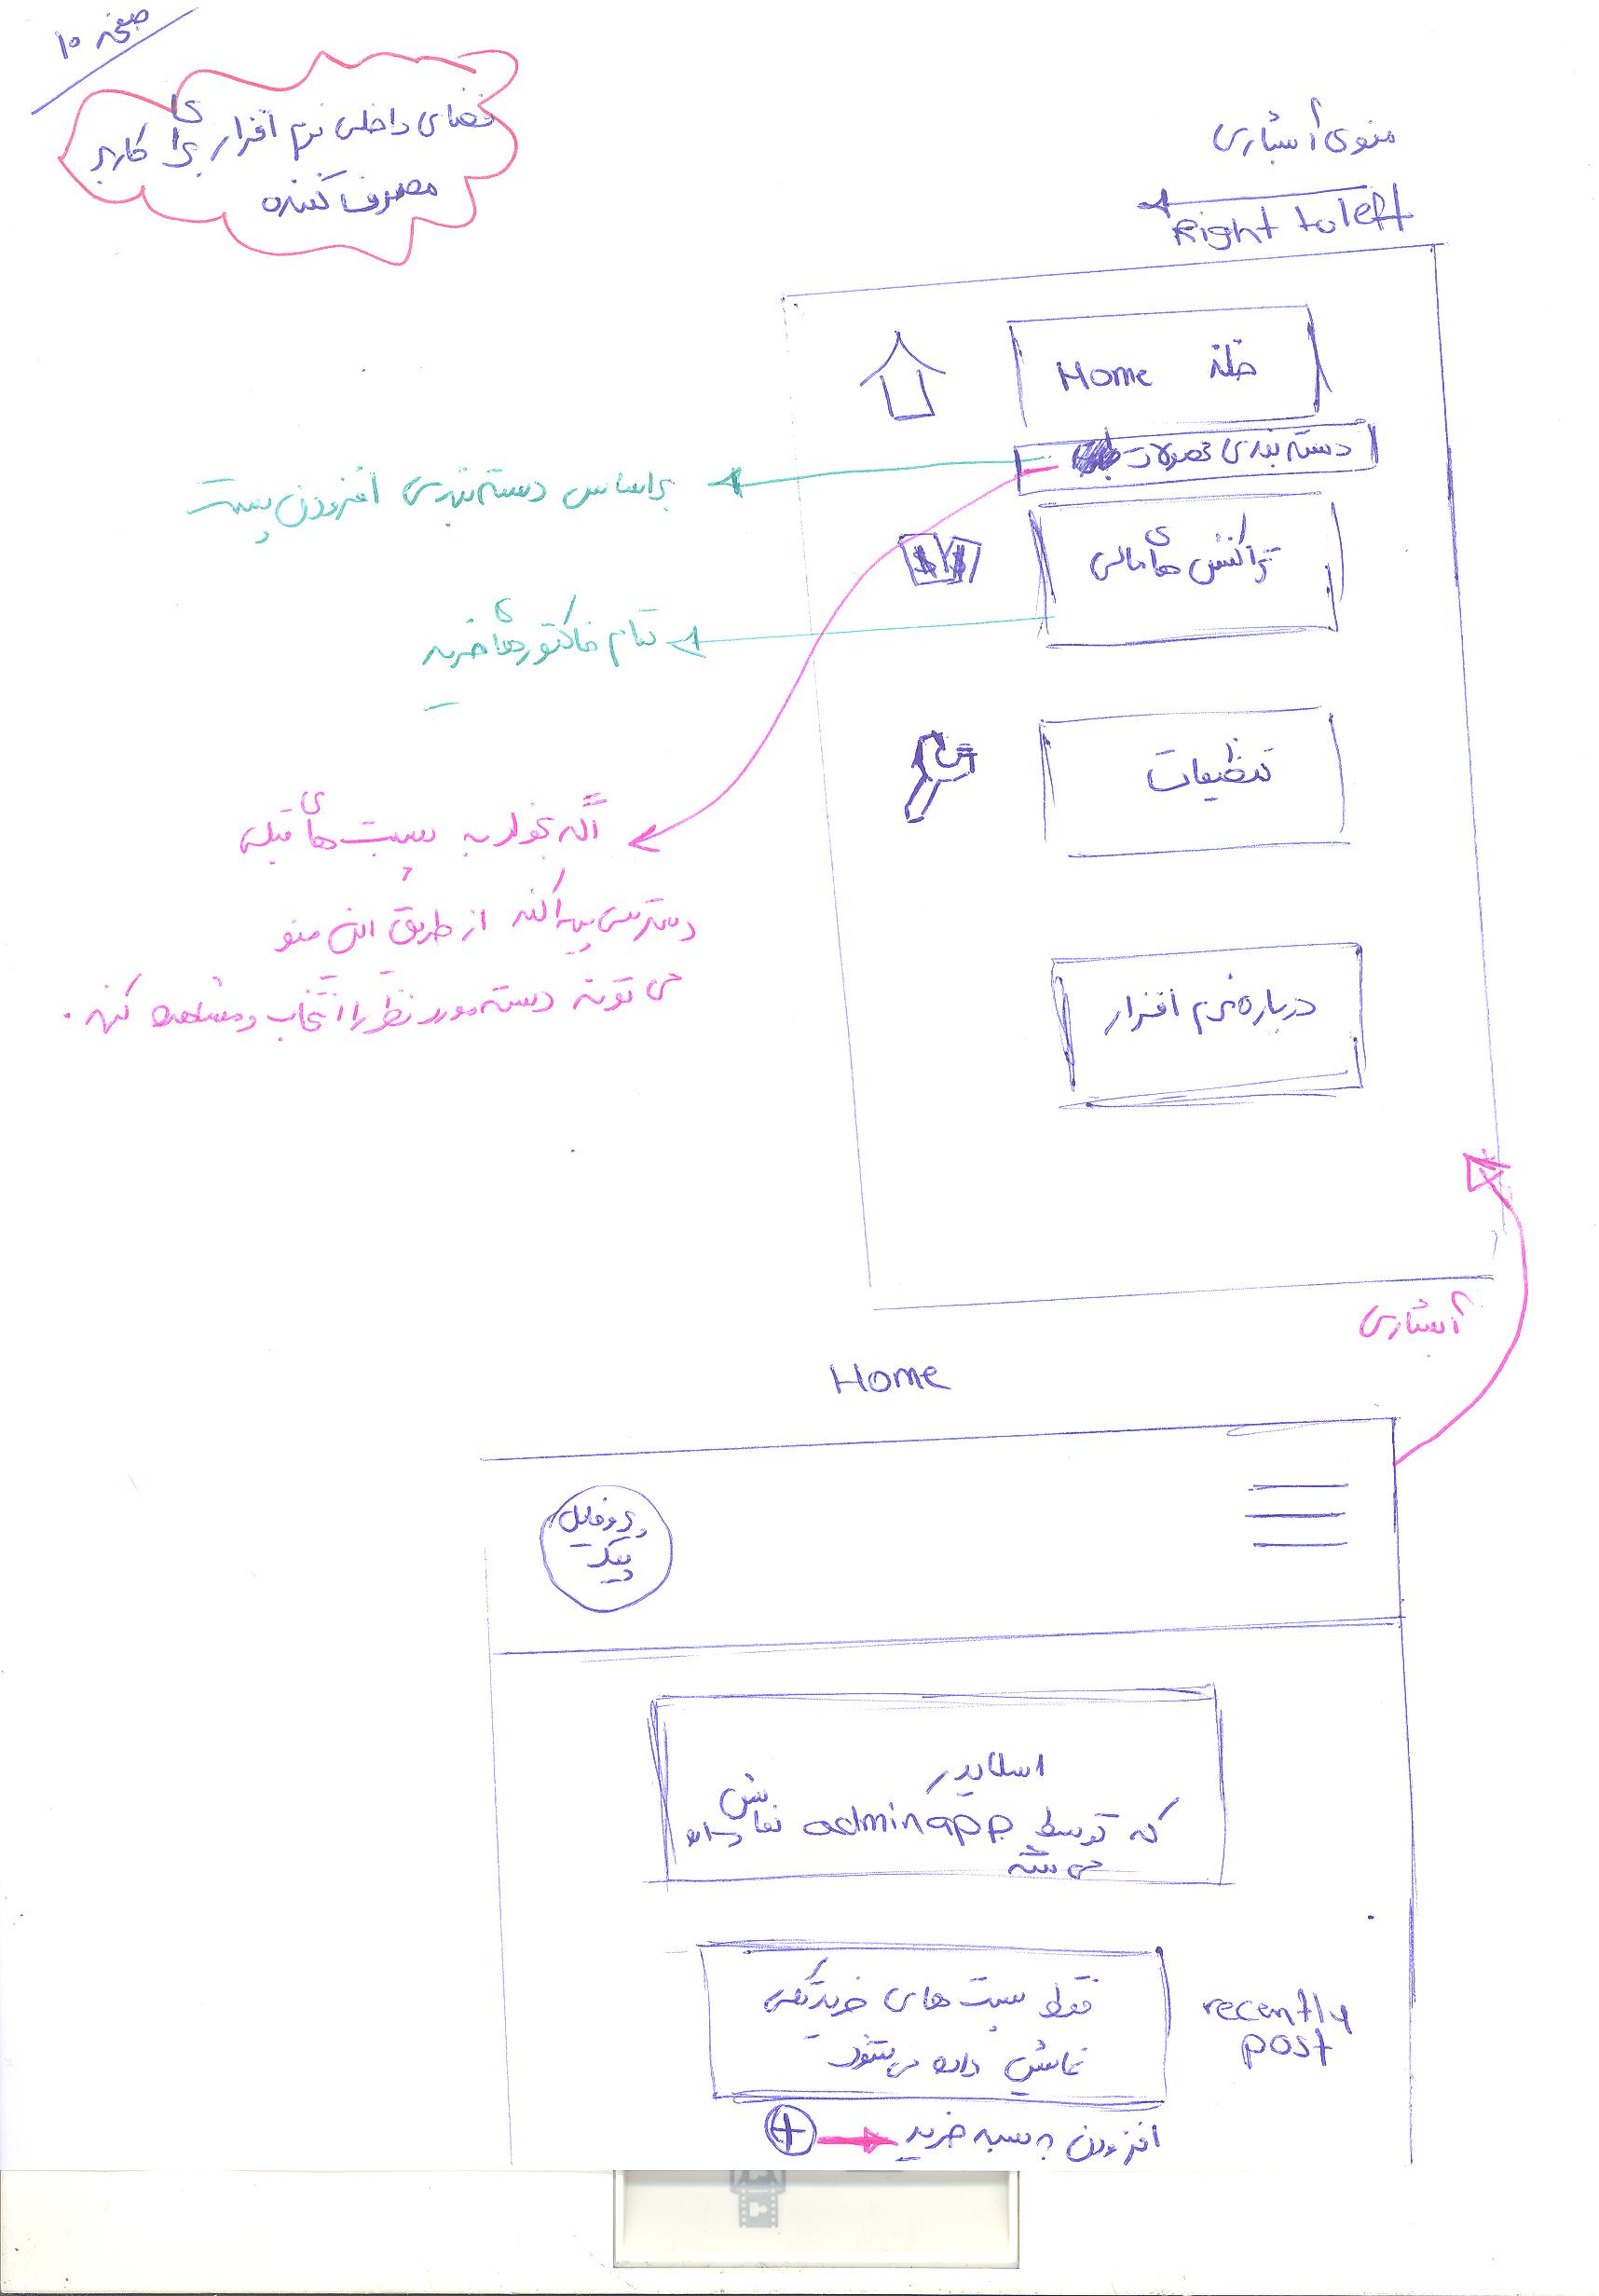 صفحه ۱۰
فضای داخلی نرم افزار برای کاربر
مصرف کننده
منوی آبشاری
Right to left
خانه Home
دسته بندی محصولات
براساس دسته بندی افزودن پست
تراکنش های مالی
تمام فاکتورهای خرید
تنظیمات
اگه بخواد به پست های قبلی
دسترسی پیدا کنه از طریق این منو
می تونه دسته مورد نظر را انتخاب و مشاهده کنه.
درباره نرم افزار
آبشاری
Home
پروفایل
پیک
اسلایدر
که توسط admin app نمایش داده
می شه
فقط پست های خرید تکی
نمایش داده می شود
recently
post
افزودن به سبد خرید